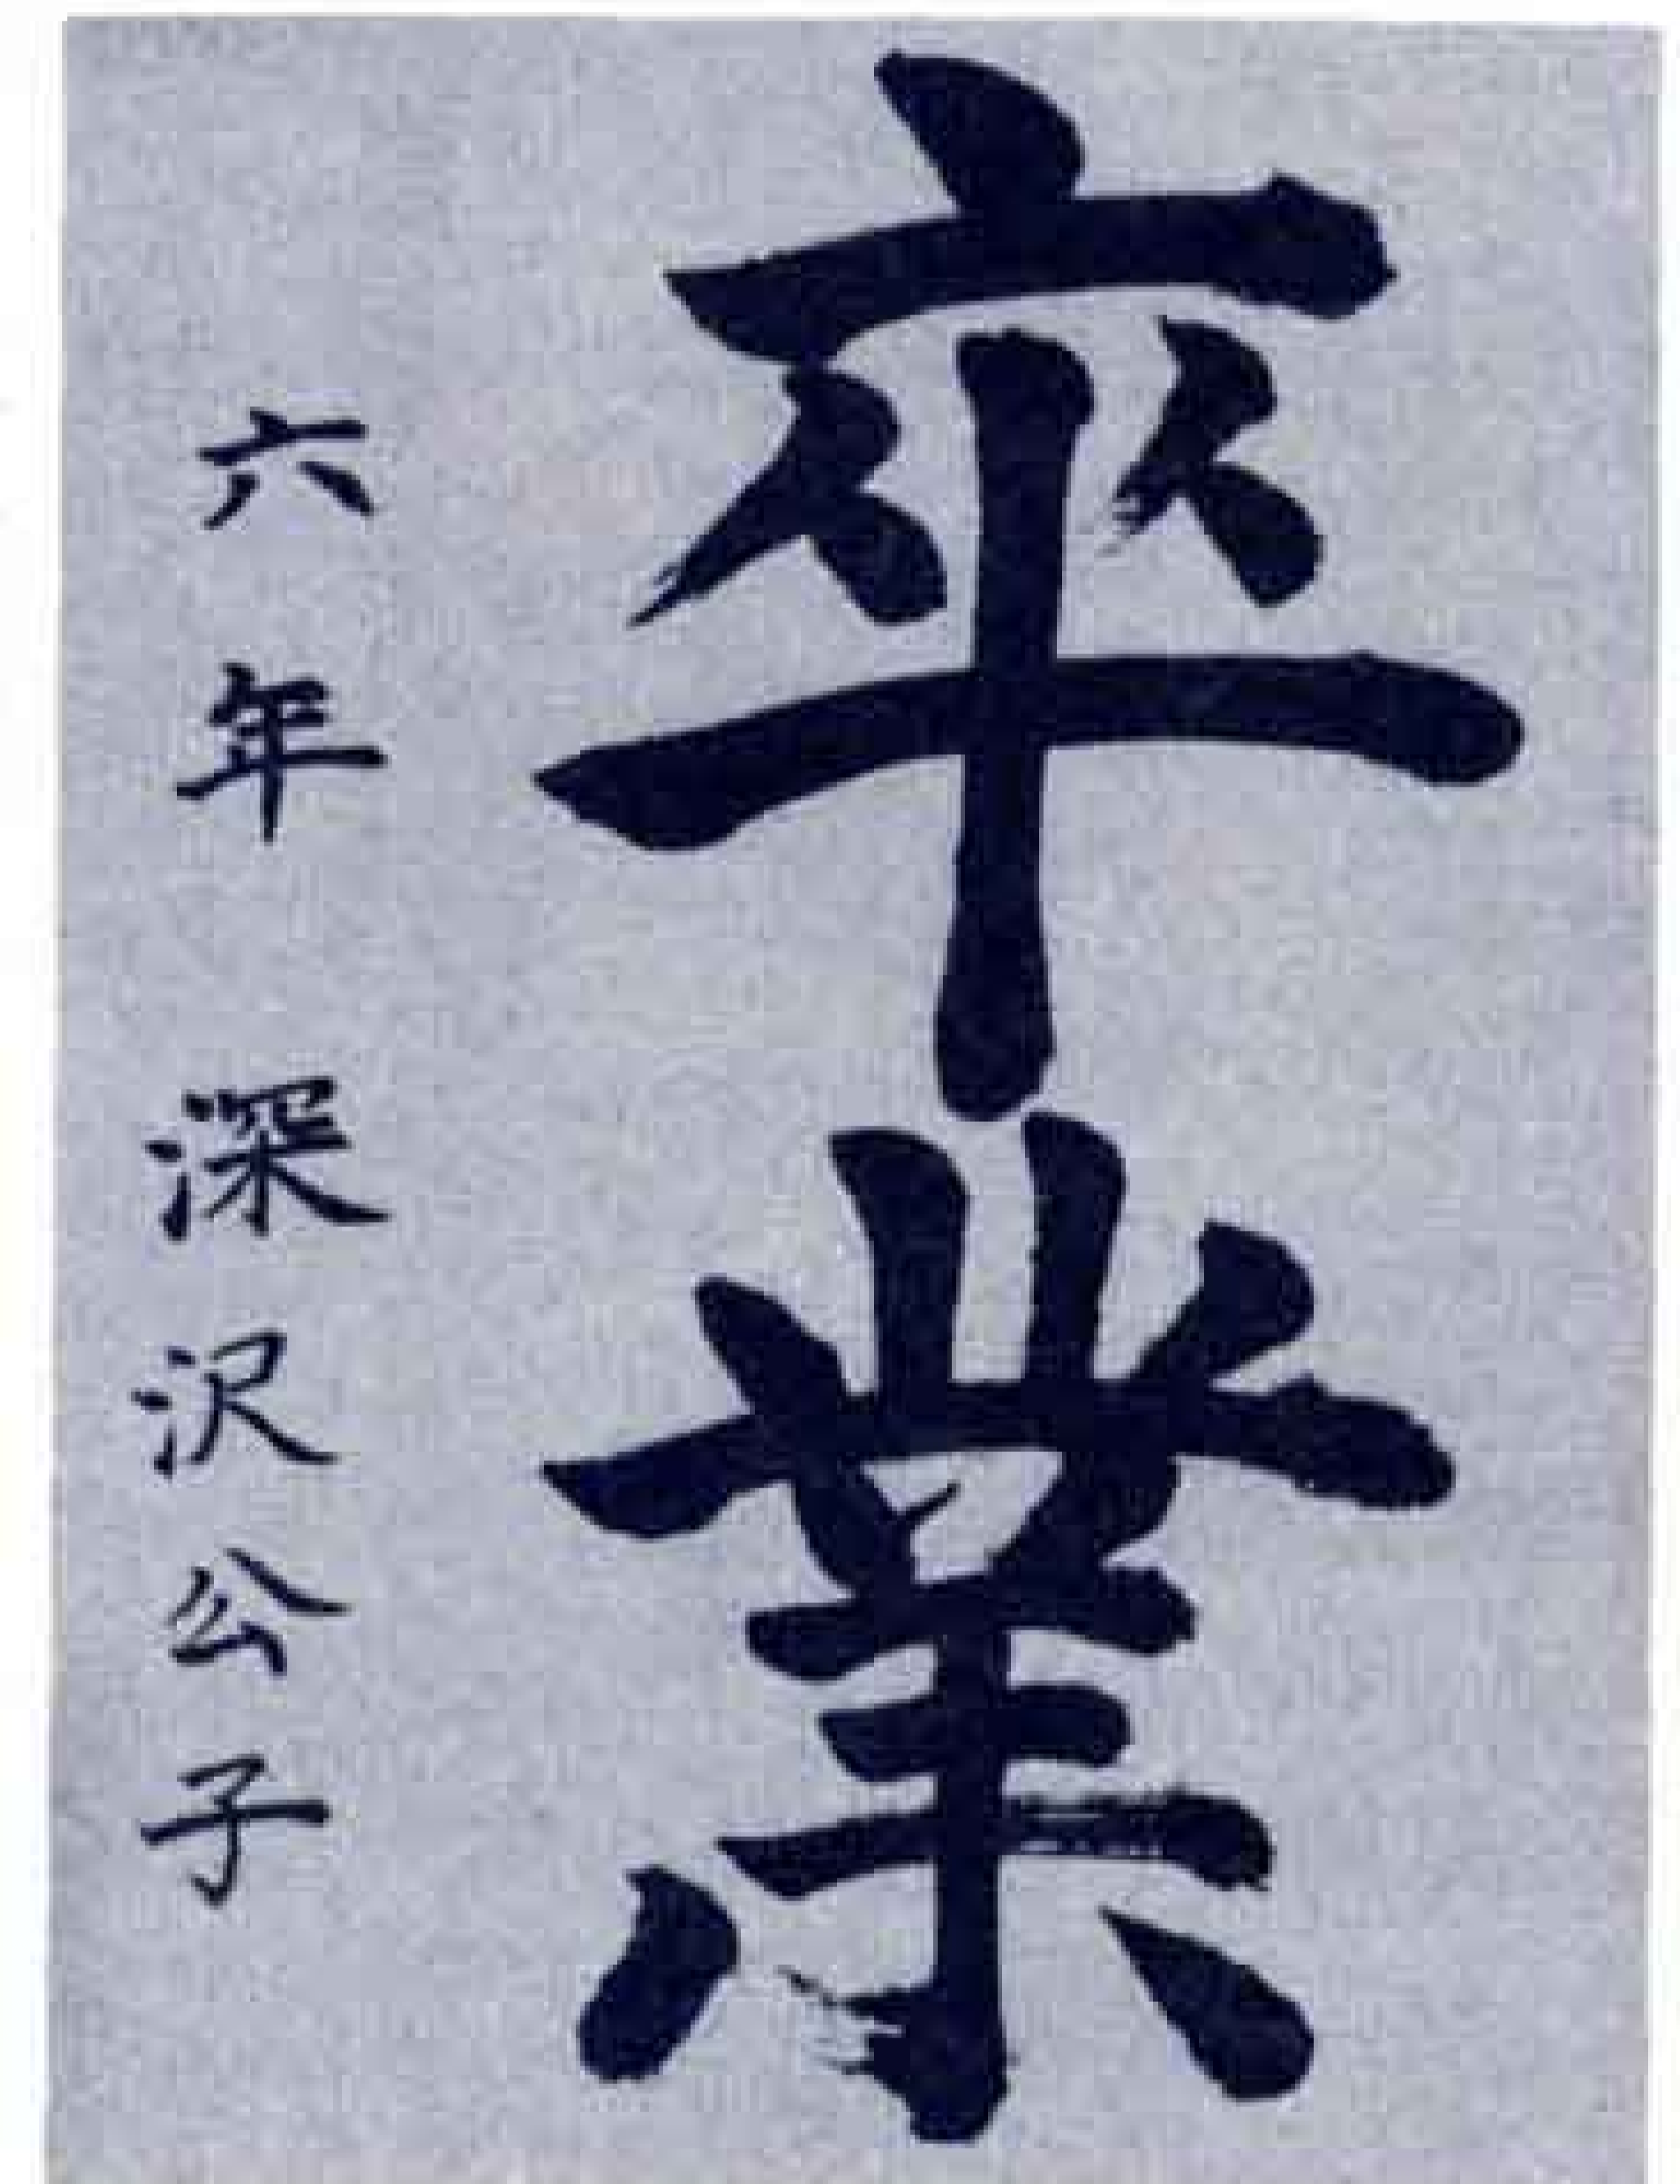 卒業
六年 深沢公子